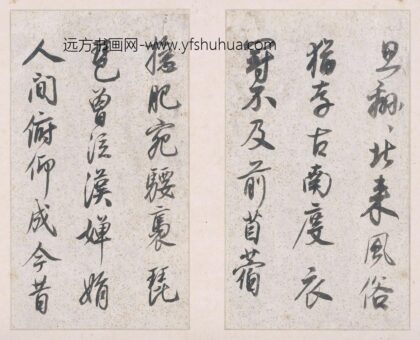 远方书画网-www.yfshuhua.com
思緜〻北来風俗
猶存古南度衣
冠不及前苜蓿
揔肥宛騕褭琵
琶曾沒漢嬋娟
人間俯仰成今昔